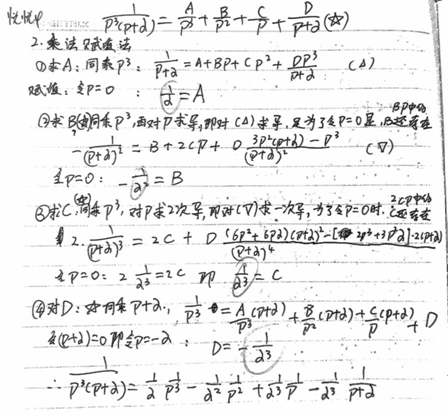 1/(p³(p+2)) = A/p³ + B/p² + C/p + D/(p+2) (☆)
2. 乘法 赋值法
①求A: 同乘p³: 1/(p+2) = A + Bp + Cp² + Dp³/(p+2) (△)
赋值: 令p=0 : 1/2 = A
②求B (☆)同乘p³, 再对p求导, 即对(△)求导, 是为了令p=0是, Bp中的B还存在
-1/(p+2)² = B + 2Cp + D (3p²(p+2) - p³)/(p+2)² (▽)
令p=0: -1/2² = B
③求C: (☆)同乘p³, 对p求2次导, 即对(▽)求一次导, 为了令p=0时. 2Cp中的C还存在
2·1/(p+2)³ = 2C + D ((6p²+6p2)(p+2)² - [2p³+3p²2]·2(p+2))/(p+2)⁴
令p=0: 2 1/2³ = 2C 即 1/2³ = C
④对D: 同乘p+2, 1/p³ = A/p³ (p+2) + B/p² (p+2) + C/p (p+2) + D
令(p+2)=0即令p=-2 : D = -1/2³
∴ 1/(p³(p+2)) = 1/2 1/p³ - 1/2² 1/p² + 1/2³ 1/p - 1/2³ 1/(p+2)